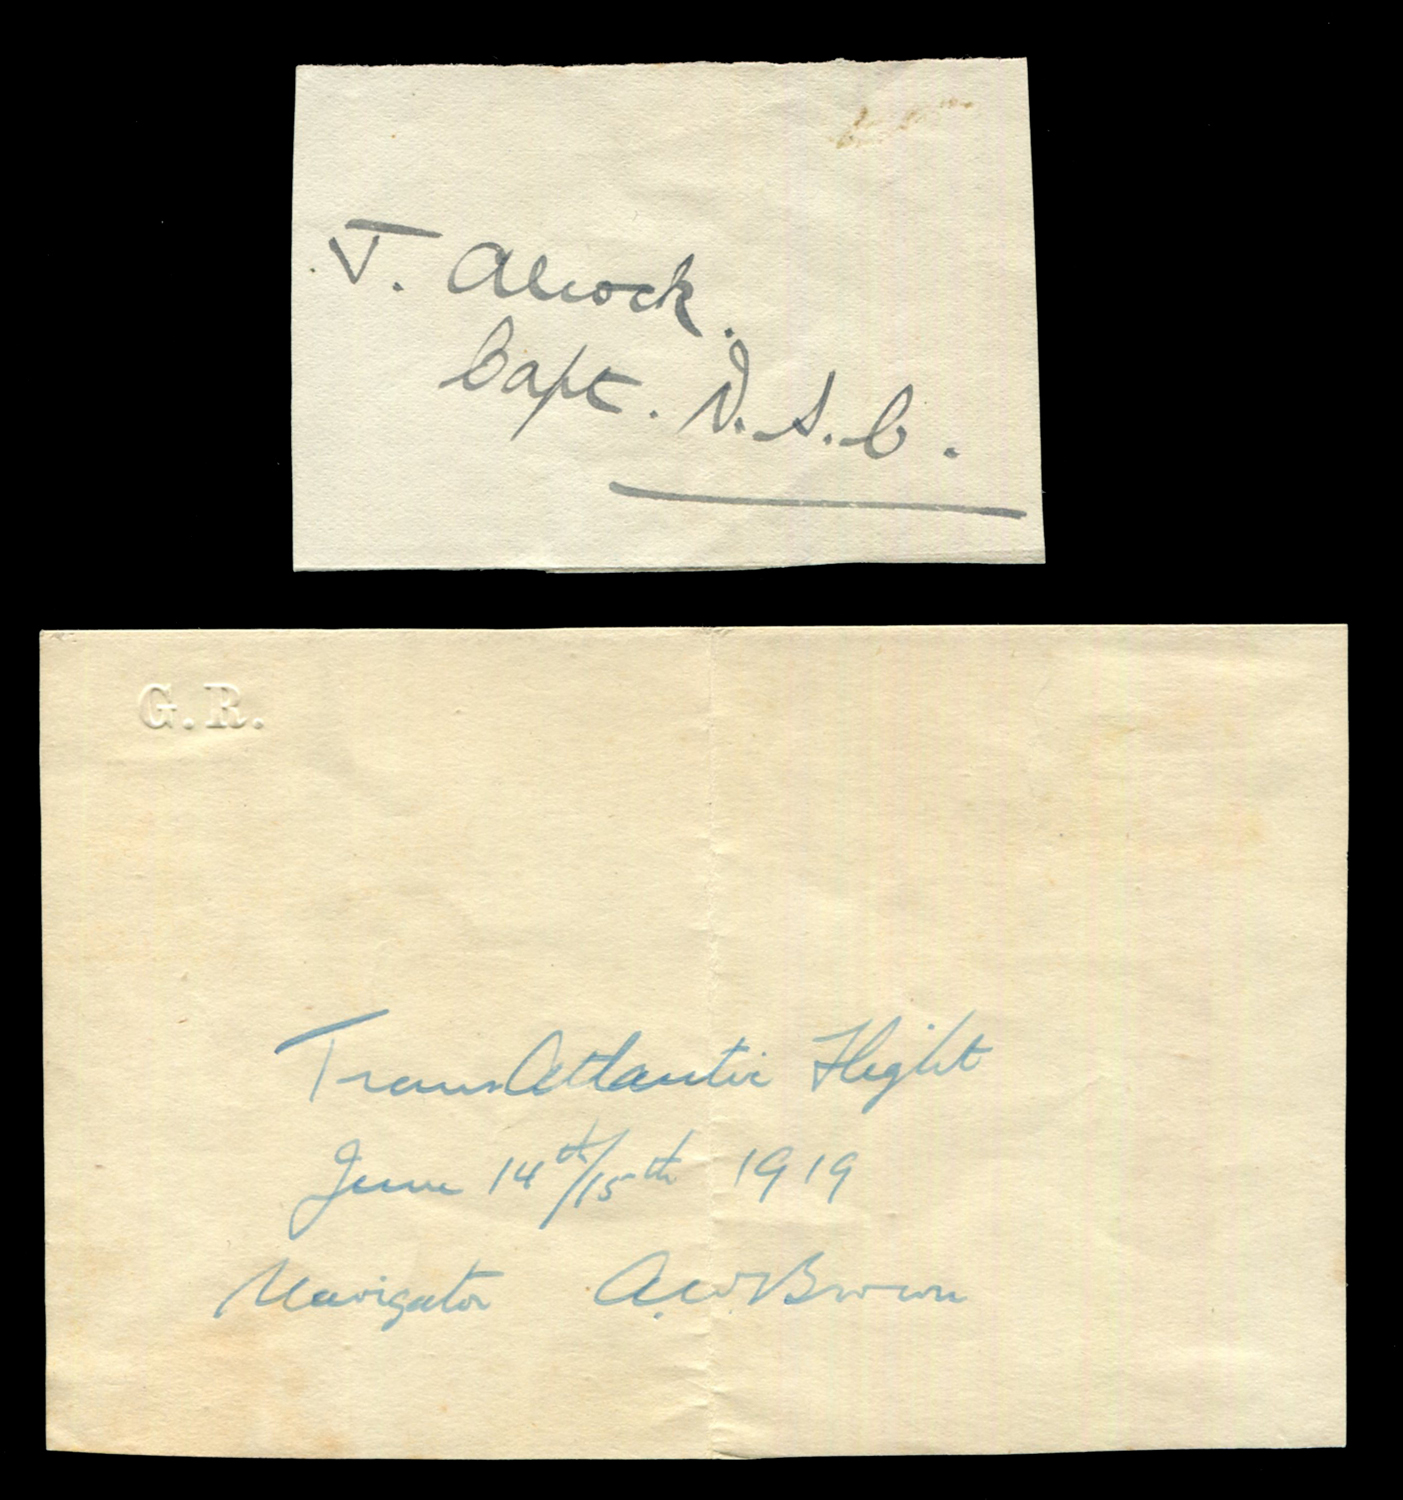 J. Alcock.
Capt. D.S.C.
G.R.
TransAtlantic Flight
June 14th/15th 1919
Navigator A.W.Brown